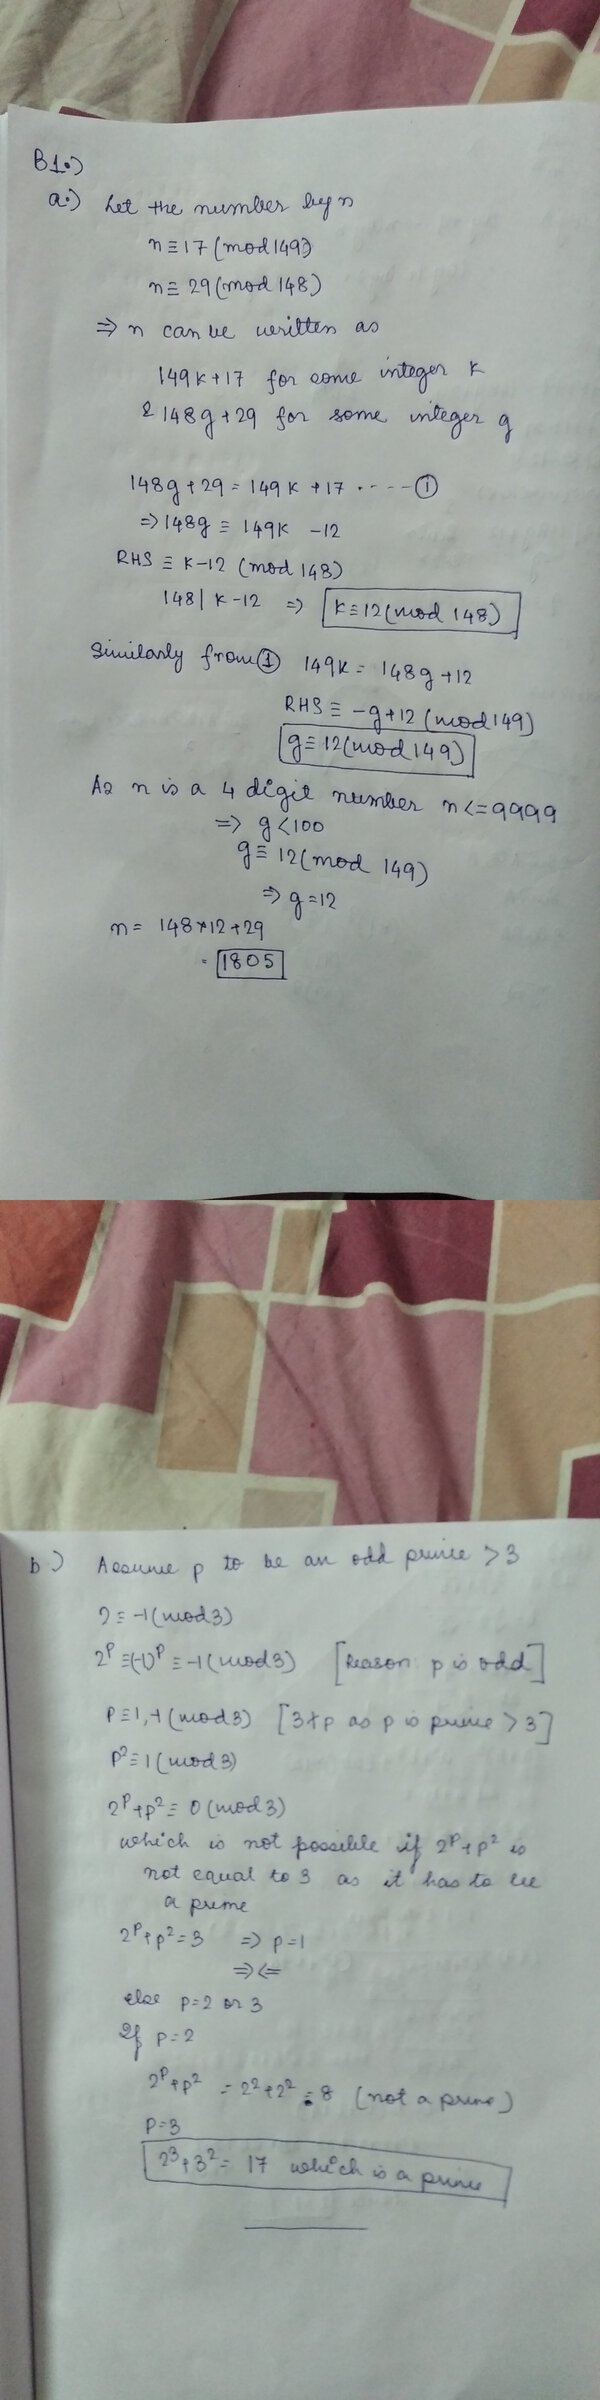 B1.)
a.) Let the number by n
n ≡ 17 (mod 149)
n ≡ 29 (mod 148)
⇒ n can be written as
149k + 17 for some integer k
& 148g + 29 for some integer g
148g + 29 = 149k + 17 ----- ①
⇒ 148g ≡ 149k - 12
RHS ≡ k - 12 (mod 148)
148 | k - 12 ⇒ k ≡ 12 (mod 148)
Similarly from ① 149k = 148g + 12
RHS ≡ -g + 12 (mod 149)
g ≡ 12 (mod 149)
As n is a 4 digit number n <= 9999
⇒ g < 100
g ≡ 12 (mod 149)
⇒ g = 12
n = 148*12 + 29
= 1805
b.) Assume p to be an odd prime > 3
2 ≡ -1 (mod 3)
2^p ≡ (-1)^p ≡ -1 (mod 3) [Reason p is odd]
p ≡ 1, -1 (mod 3) [3 ∤ p as p is prime > 3]
p² ≡ 1 (mod 3)
2^p + p² ≡ 0 (mod 3)
which is not possible if 2^p + p² is
not equal to 3 as it has to be
a prime
2^p + p² = 3 ⇒ p = 1
⇒⇐
else p = 2 or 3
If p = 2
2^p + p² = 2² + 2² = 8 (not a prime)
p = 3
2³ + 3² = 17 which is a prime